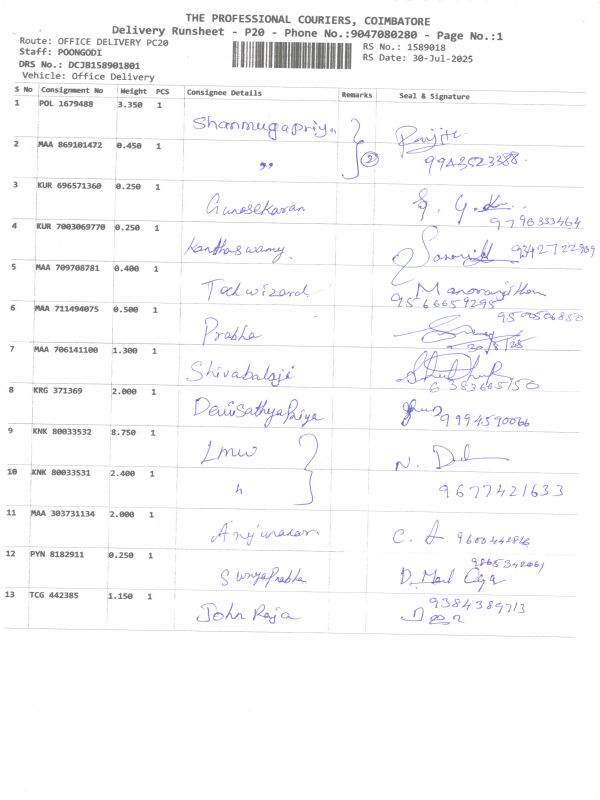 THE PROFESSIONAL COURIERS, COIMBATORE
Delivery Runsheet - P20 - Phone No.:9047080280 - Page No.:1
Route: OFFICE DELIVERY PC20
RS No.: 1589018
Staff: POONGODI
RS Date: 30-Jul-2025
DRS No.: DCJB158901801
Vehicle: Office Delivery
S No Consignment No Weight PCS Consignee Details Remarks Seal & Signature
1 POL 1679488 3.350 1 Shanmugapriya
2 MAA 869101472 0.450 1 ,, 2 9943523388
3 KUR 696571360 0.250 1 Gunasekaran 9790333464
4 KUR 7003069770 0.250 1 Kanthaswamy
5 MAA 709708781 0.400 1 Tadwizard Manoranjitham
9566659295
6 MAA 711494075 0.500 1 Prabha
7 MAA 706141100 1.300 1 Shivabalaji
8 KRG 371369 2.000 1 DeviSathyaPriya 9994590066
9 KNK 80033532 8.750 1 LMW
10 KNK 80033531 2.400 1 9677421633
11 MAA 303731134 2.000 1
12 PYN 8182911 0.250 1 SuryaPrabha
13 TCG 442385 1.150 1 John Raja 9384389713